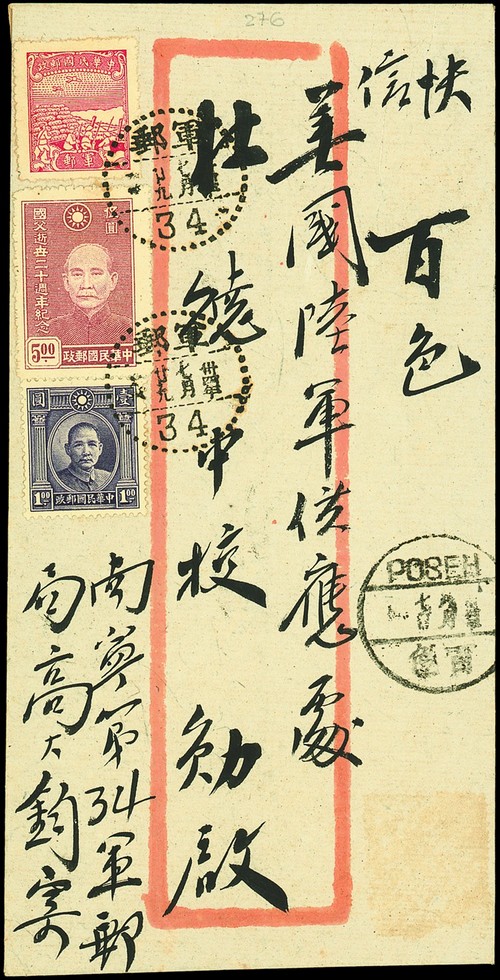 276
快信
百色
美國陸軍供應處
杜中校 勛啟
南寧第34軍郵
局高大鈞寄
中華民國郵政
軍郵
伍圓
國父逝世二十週年紀念
5.00
中華民國郵政
壹圓
1.00 1.00
中華民國郵政
軍郵
七月
廿九
34
軍郵
卅四年
七月
廿九
34
POSEH
百色